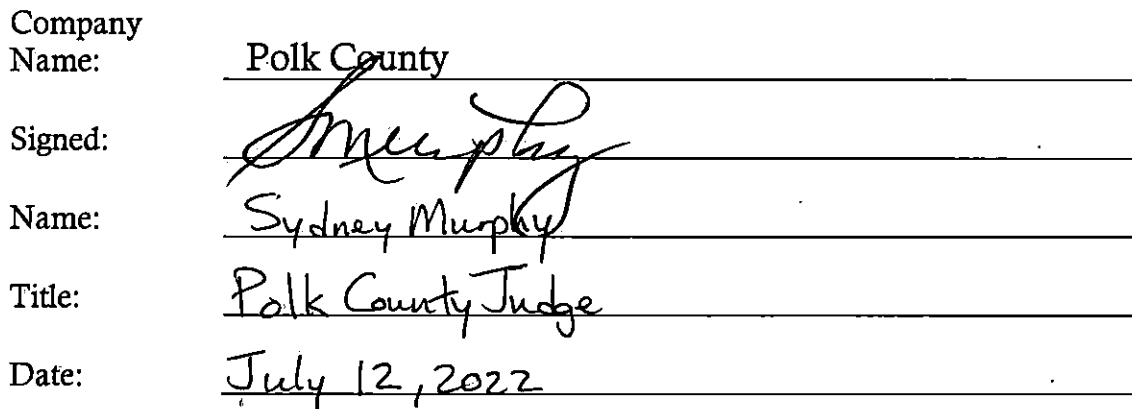 Company
Name: Polk County
Signed: SMurphy
Name: Sydney Murphy
Title: Polk County Judge
Date: July 12, 2022